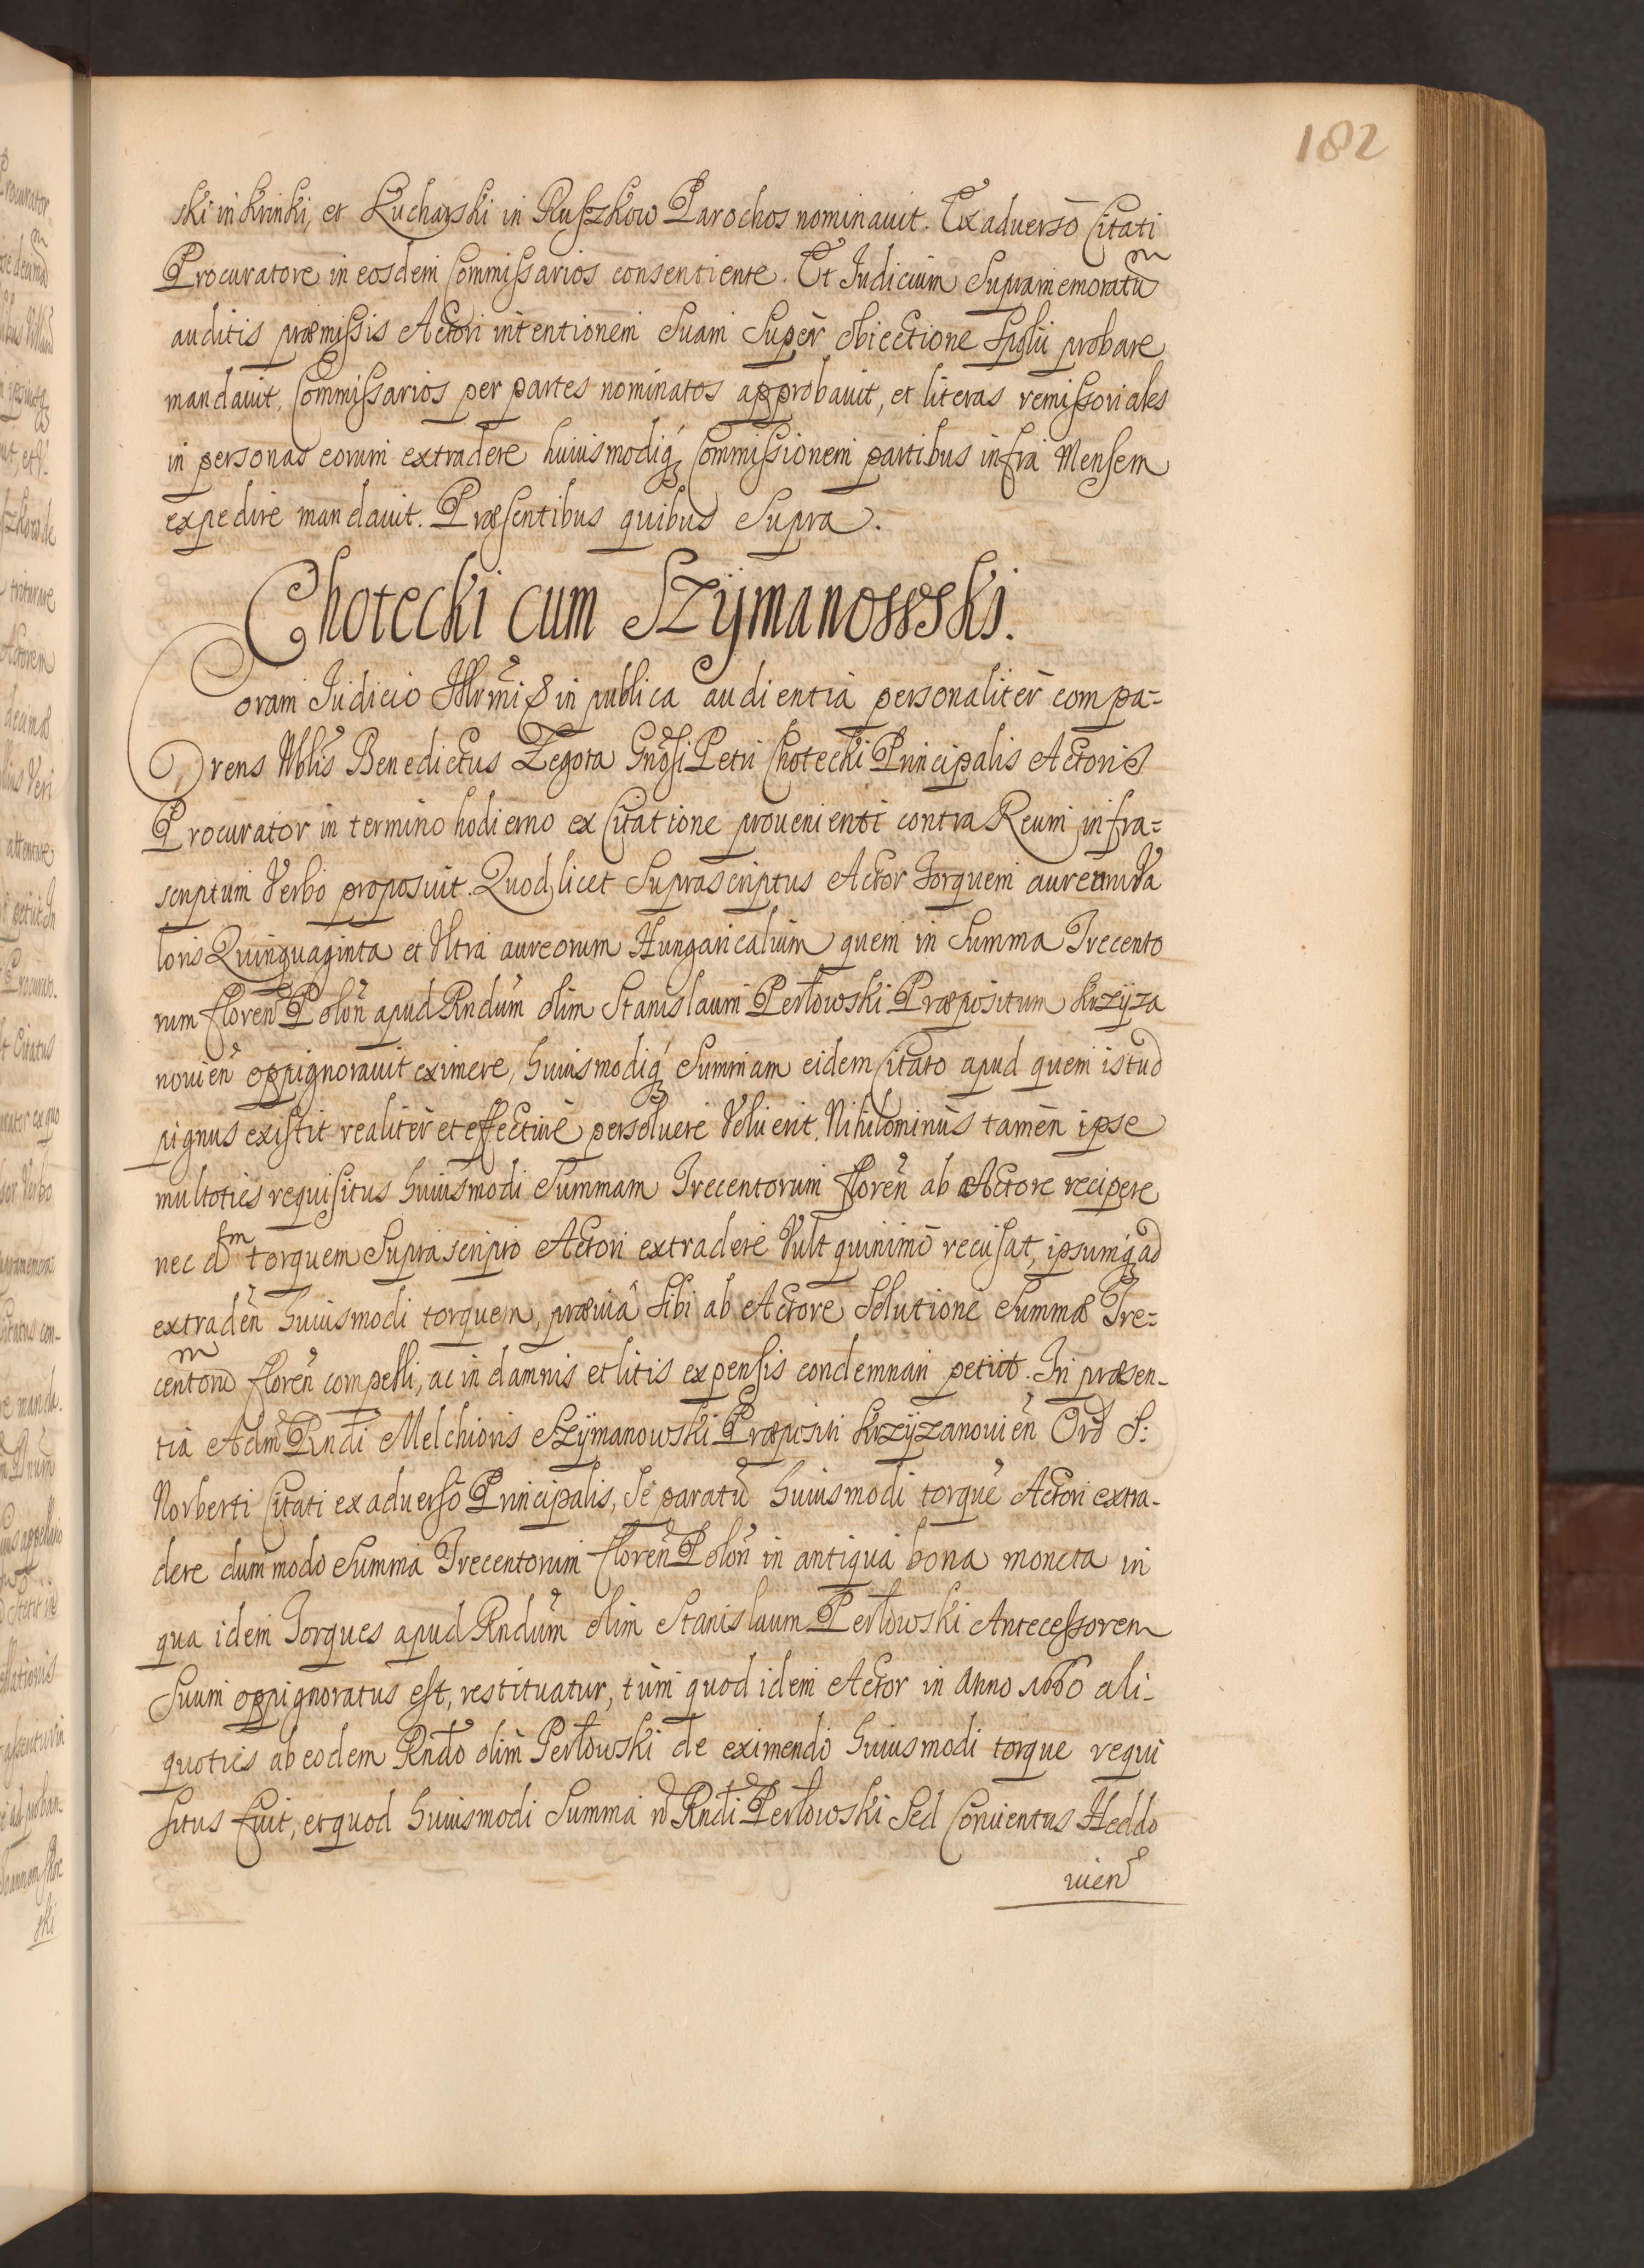 182
ski in Krinki, et Kucharski in Ruszkow Parochos nominauit. Ex aduerso Citati
Procuratore in eosdem Commissarios consentiente. Et Iudicium Supramemoratũ
auditis præmissis Actori intentionem Suam Super obiectione Spolii probare
mandauit, Commissarios per partes nominatos approbauit, et literas remissoriales
in personas eorum extradere huiusmodiq́ Commissionem partibus infra Mensem
expedire mandauit. Præsentibus quibus Supra.
Chotecki cum Szÿmanowski.
Coram Iudicio Illrmi & in publica audientia personaliter compa=
rens Nblis Benedictus Zegota Gnosi Petri Chotecki Principalis Actoris
Procurator in termino hodierno ex Citatione prouenienti contra Reum infra=
scriptum Verbo proposuit. Quod licet Suprascriptus Actor Torquem aureum Va
loris Quinquaginta et Vltra aureorum Hungaricalium quem in Summa Trecento
rum floren Polon apud Rndum olim Stanislaum Perłowski Præpositum Krzÿza
nouien oppignorauit eximere, huiusmodiq́ Summam eidem Citato apud quem istud
pignus existit realiter et effectiue persoluere Voluerit. Nihilominus tamen ipse
multoties requisitus huiusmodi Summam Trecentorum floren ab Actore recipere
nec torquem Suprascripto Actori extradere Vult quinimo recusat, ipsumq́ ad
extraden huiusmodi torquem, præuia Sibi ab Actore Solutione Summæ Tre=
centorũ floren compelli, ac in damnis et litis expensis condemnari petiit. In præsen-
tia Adm Rndi Melchioris Szÿmanowski Præpositi Krzÿzanouien Ord S:
Norberti Citati ex aduerso Principalis, Se paratũ huiusmodi torquē Actori extra-
dere dummodo Summa Trecentorum floren Polon in antiqua bona moneta in
qua idem Torques apud Rndum olim Stanislaum Perłowski Antecessorem
Suum oppignoratus est, restituatur, tum quod idem Actor in Anno 1660 ali-
quoties ab eodem Rndo olim Perłowski de eximendo huiusmodi torque requi
situs fuit, et quod huiusmodi Summa ñ Rndi Perłowski Sed Conuentus Heddo
uien